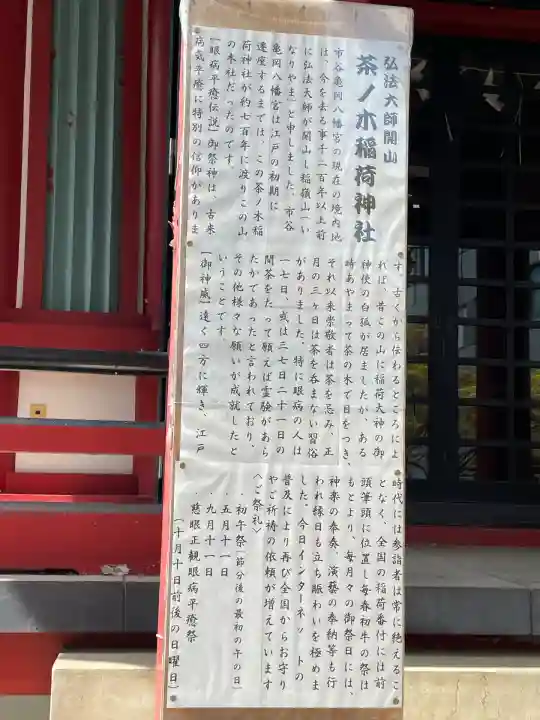 弘法大師開山
茶ノ木稲荷神社
市谷亀岡八幡宮の現在の境内地
は、今を去る事千二百年以上前
に弘法大師が開山し稲嶺山(い
なりやま)と申しました。市谷
亀岡八幡宮は江戸の初期に
遷座するまでは、この茶ノ木稲
荷神社が約七百年に渡りこの山
の本社だったのです。
[眼病平癒伝説]御祭神は、古来
病気平癒に特別の信仰がありま
す。古くから伝わるところによ
れば、昔この山に稲荷大神の御
神使の白狐が居ましたが、ある
時あやまって茶の木で目をつき、
それ以来崇敬者は茶を忌み、正
月の三ヶ日は茶を呑まない習俗
がありました。特に眼病の人は
一七日、或は三七日二十一日の
間茶をたって願えば霊験があら
たかであったと言われており、
その他様々な願いが成就したと
いうことです。
[御神威]遠く四方に輝き、江戸
時代には参詣者は常に絶えるこ
となく、全国の稲荷番付には前
頭筆頭に位置し毎春初午の祭は
もとより、毎月々の御祭日には、
神楽の奉奏、演藝の奉納等も行
われ縁日も立ち賑わいを極めま
した。今日インターネットの
普及により再び全国からお守り
やご祈祷の依頼が増えています
〈ご祭礼〉
・初午祭(節分後の最初の午の日)
・五月十一日
・九月十一日
慈眼正観眼病平癒祭
(十月十日前後の日曜日)